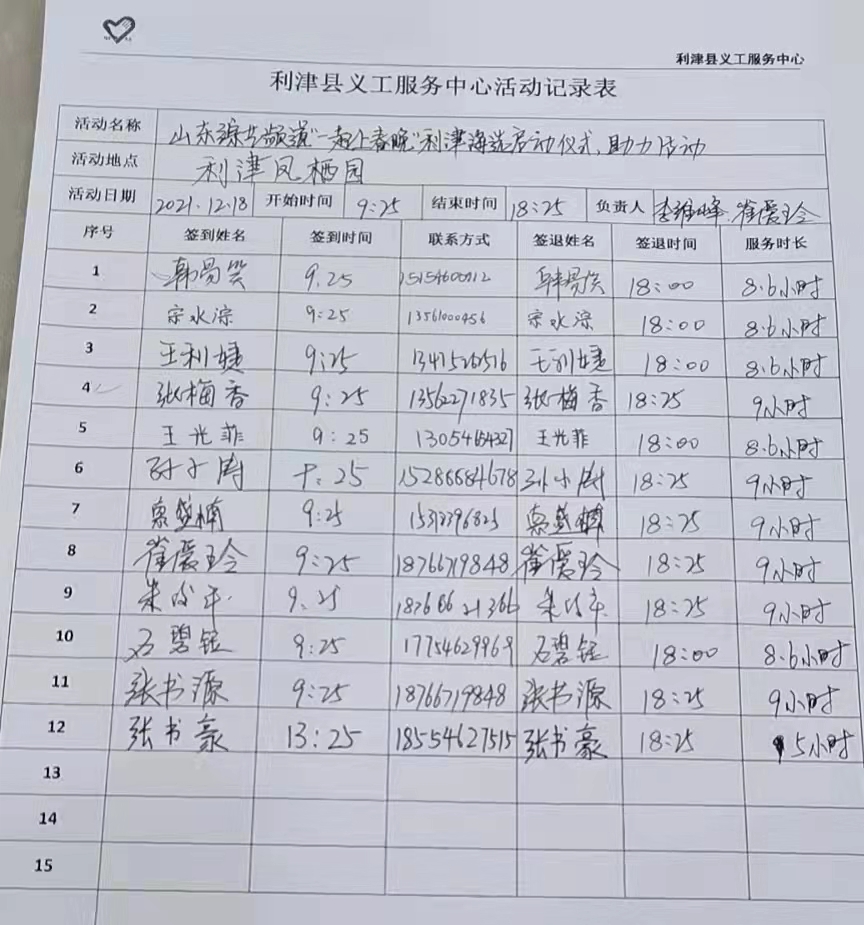 利津县义工服务中心
利津县义工服务中心活动记录表
活动名称 山东综艺频道"一起上春晚"利津海选启动仪式,助力活动
活动地点 利津凤栖园
活动日期 2021.12.18 开始时间 9:25 结束时间 18:25 负责人 李维峰 崔爱玲
序号 签到姓名 签到时间 联系方式 签退姓名 签退时间 服务时长
1 9.25 18:00 8.6小时
2 宗水淙 9:25 13561000456 宗水淙 18:00 8.6小时
3 王利婕 9:25 王利婕 18:00 8.6小时
4 张梅香 9:25 13562271835 张梅香 18:25 9小时
5 王光菲 9:25 王光菲 18:00 8.6小时
6 15286684678 18:25 9小时
7 9:25 18:25 9小时
8 崔爱玲 9:25 18766719848 崔爱玲 18:25 9小时
9 9.25 18:25 9小时
10 石碧钰 9:25 17754629969 石碧钰 18:00 8.6小时
11 张书源 9:25 18766719848 张书源 18:25 9小时
12 张书豪 13:25 18554627515 张书豪 18:25 5小时
13
14
15